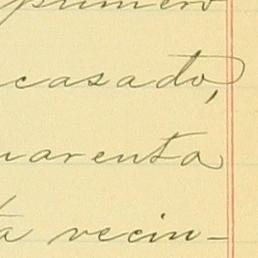 primero
casado,
uarenta
ta vecin-